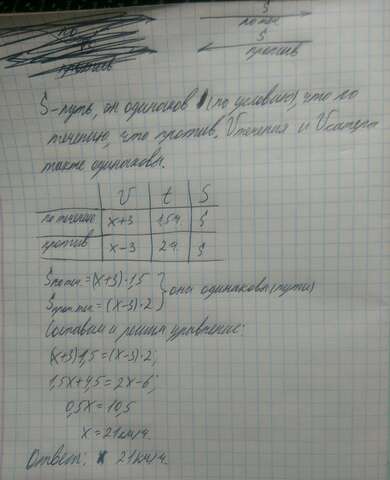 S
по теч.
S
против
S-путь, он одинаков (по условию), что по
течению, что против, Vтечения и Vкатера
также одинаковы.
V t S
по течению x+3 1,5ч. S
против x-3 2ч. S
Sпо теч.=(x+3)·1,5
Sпрот.теч.=(x-3)·2
они одинаковы(пути)
Составим и решим уравнение:
(x+3)1,5=(x-3)·2;
1,5x+4,5=2x-6;
0,5x=10,5
x=21км/ч.
Ответ: 21км/ч.